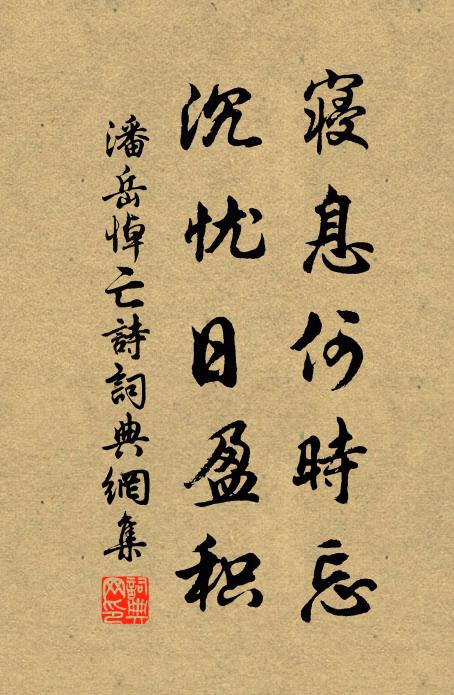 寝息何時忘
沉忧日盈积
潘岳悼亡詩詞典網集
詞典网印